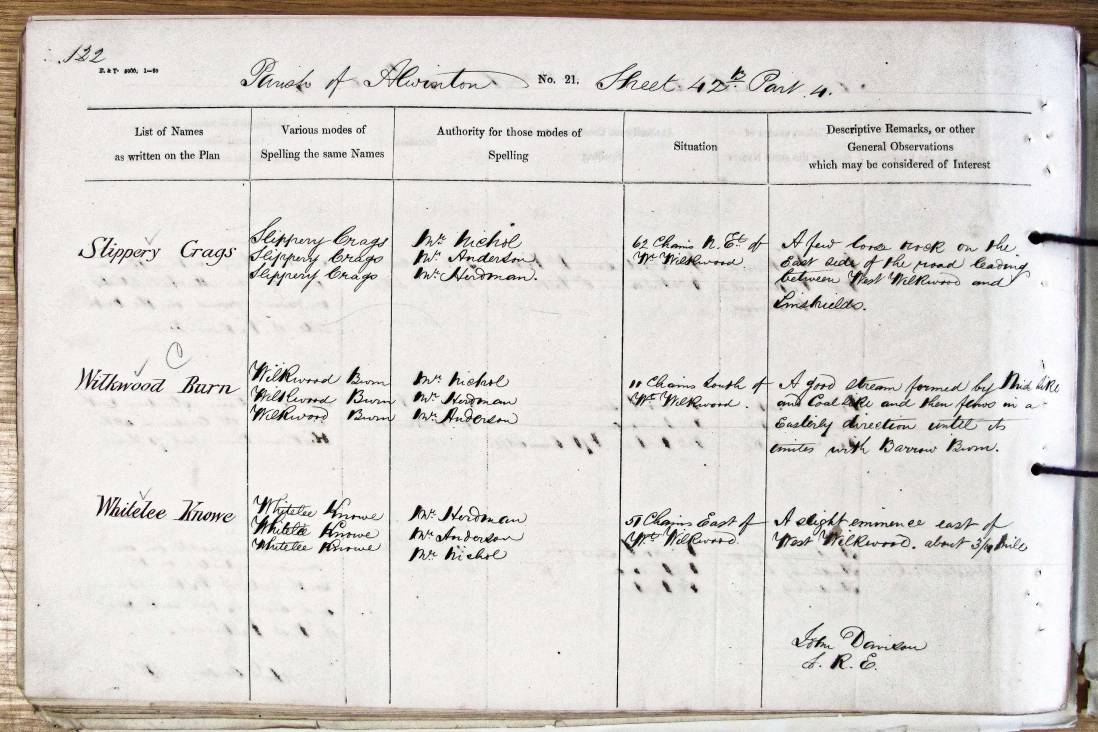 122
Parish of Alwinton No. 21. Sheet 42 Part 4.
List of Names
as written on the Plan
Various modes of
Spelling the same Names
Authority for those modes of
Spelling
Situation
Descriptive Remarks, or other
General Observations
which may be considered of Interest
Slippery Crags
Slippery Crags
Slippery Crags
Slippery Crags
Mr. Nichol
Mr. Anderson
Mr. Herdman.
62 Chains N. Et. of
Wt. Wilkwood
A few loose rock on the
East side of the road leading
between West Wilkwood and
Linshields.
Wilkwood Burn
Wilkwood Burn
Wilkwood Burn
Wilkwood Burn
Mr. Nichol
Mr. Herdman
Mr. Anderson
11 Chains South of
Wt. Wilkwood.
A good stream formed by Mid Sike
and Coal Sike and then flows in a
Easterly direction until its
unites with Barrow Burn.
Whitelee Knowe
Whitelee Knowe
Whitelee Knowe
Whitelee Knowe
Mr. Herdman
Mr. Anderson
Mr. Nichol
51 Chains East of
Wt. Wilkwood
A slight eminence east of
West Wilkwood. about 3/10 Mile
John Davison
S. R. E.